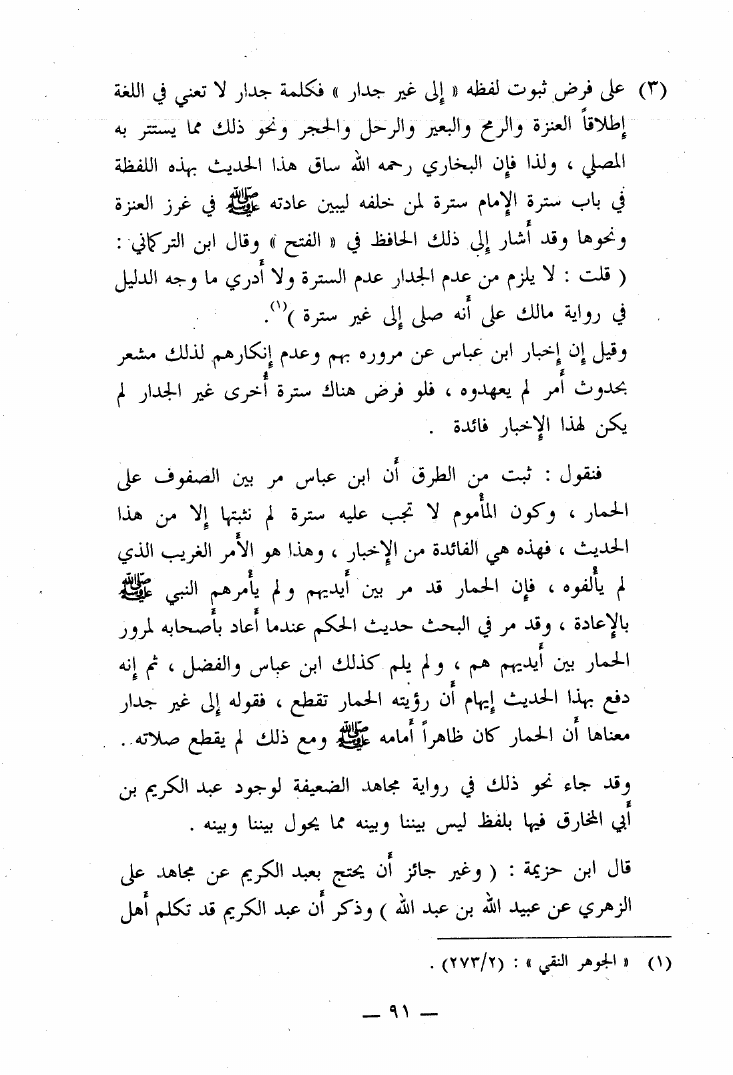 (٣) على فرض ثبوت لفظه « إلى غير جدار » فكلمة جدار لا تعني في اللغة
إطلاقاً العنزة والرمح والبعير والرحل والحجر ونحو ذلك مما يستتر به
المصلي ، ولذا فإن البخاري رحمه الله ساق هذا الحديث بهذه اللفظة
في باب سترة الإمام سترة لمن خلفه ليبين عادته ﷺ في غرز العنزة
ونحوها وقد أشار إلى ذلك الحافظ في « الفتح » وقال ابن التركماني :
( قلت : لا يلزم من عدم الجدار عدم السترة ولا أدري ما وجه الدليل
في رواية مالك على أنه صلى إلى غير سترة )(١).
وقيل إن إخبار ابن عباس عن مروره بهم وعدم إنكارهم لذلك مشعر
بحدوث أمر لم يعهدوه ، فلو فرض هناك سترة أخرى غير الجدار لم
يكن لهذا الإخبار فائدة .
فنقول : ثبت من الطرق أن ابن عباس مر بين الصفوف على
الحمار ، وكون المأموم لا تجب عليه سترة لم نثبتها إلا من هذا
الحديث ، فهذه هي الفائدة من الإخبار ، وهذا هو الأمر الغريب الذي
لم يألفوه ، فإن الحمار قد مر بين أيديهم ولم يأمرهم النبي ﷺ
بالإعادة ، وقد مر في البحث حديث الحكم عندما أعاد بأصحابه لمرور
الحمار بين أيديهم هم ، ولم يلم كذلك ابن عباس والفضل ، ثم إنه
دفع بهذا الحديث إيهام أن رؤيته الحمار تقطع ، فقوله إلى غير جدار
معناها أن الحمار كان ظاهراً أمامه ﷺ ومع ذلك لم يقطع صلاته..
وقد جاء نحو ذلك في رواية مجاهد الضعيفة لوجود عبد الكريم بن
أبي المخارق فيها بلفظ ليس بيننا وبينه مما يحول بيننا وبينه .
قال ابن حزيمة : ( وغير جائز أن يحتج بعبد الكريم عن مجاهد على
الزهري عن عبيد الله بن عبد الله ) وذكر أن عبد الكريم قد تكلم أهل
(١) « الجوهر النقي » : (٢٧٣/٢) .
— ٩١ —